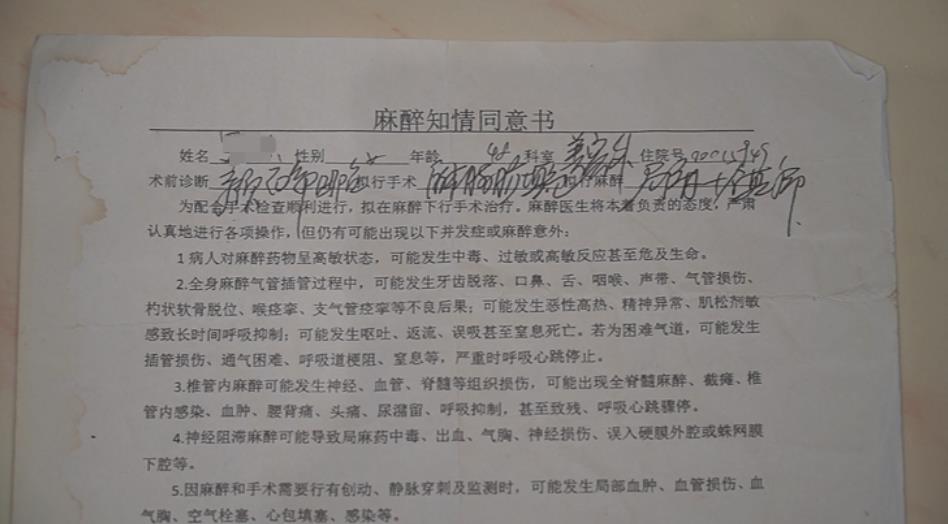 麻醉知情同意书
姓名 性别 女 年龄 48 科室 普外科 住院号 00015949
术前诊断 拟行手术 拟行麻醉 局麻+
为配合手术检查顺利进行，拟在麻醉下行手术治疗。麻醉医生将本着负责的态度，严肃
认真地进行各项操作，但仍有可能出现以下并发症或麻醉意外：
1 病人对麻醉药物呈高敏状态，可能发生中毒、过敏或高敏反应甚至危及生命。
2.全身麻醉气管插管过程中，可能发生牙齿脱落、口鼻、舌、咽喉、声带、气管损伤、
杓状软骨脱位、喉痉挛、支气管痉挛等不良后果；可能发生恶性高热、精神异常、肌松剂敏
感致长时间呼吸抑制；可能发生呕吐、返流、误吸甚至窒息死亡。若为困难气道，可能发生
插管损伤、通气困难、呼吸道梗阻、窒息等，严重时呼吸心跳停止。
3.椎管内麻醉可能发生神经、血管、脊髓等组织损伤，可能出现全脊髓麻醉、截瘫、椎
管内感染、血肿、腰背痛、头痛、尿潴留、呼吸抑制，甚至致残、呼吸心跳骤停。
4.神经阻滞麻醉可能导致局麻药中毒、出血、气胸、神经损伤、误入硬膜外腔或蛛网膜
下腔等。
5.因麻醉和手术需要行有创动、静脉穿刺及监测时，可能发生局部血肿、血管损伤、血
气胸、空气栓塞、心包填塞、感染等。